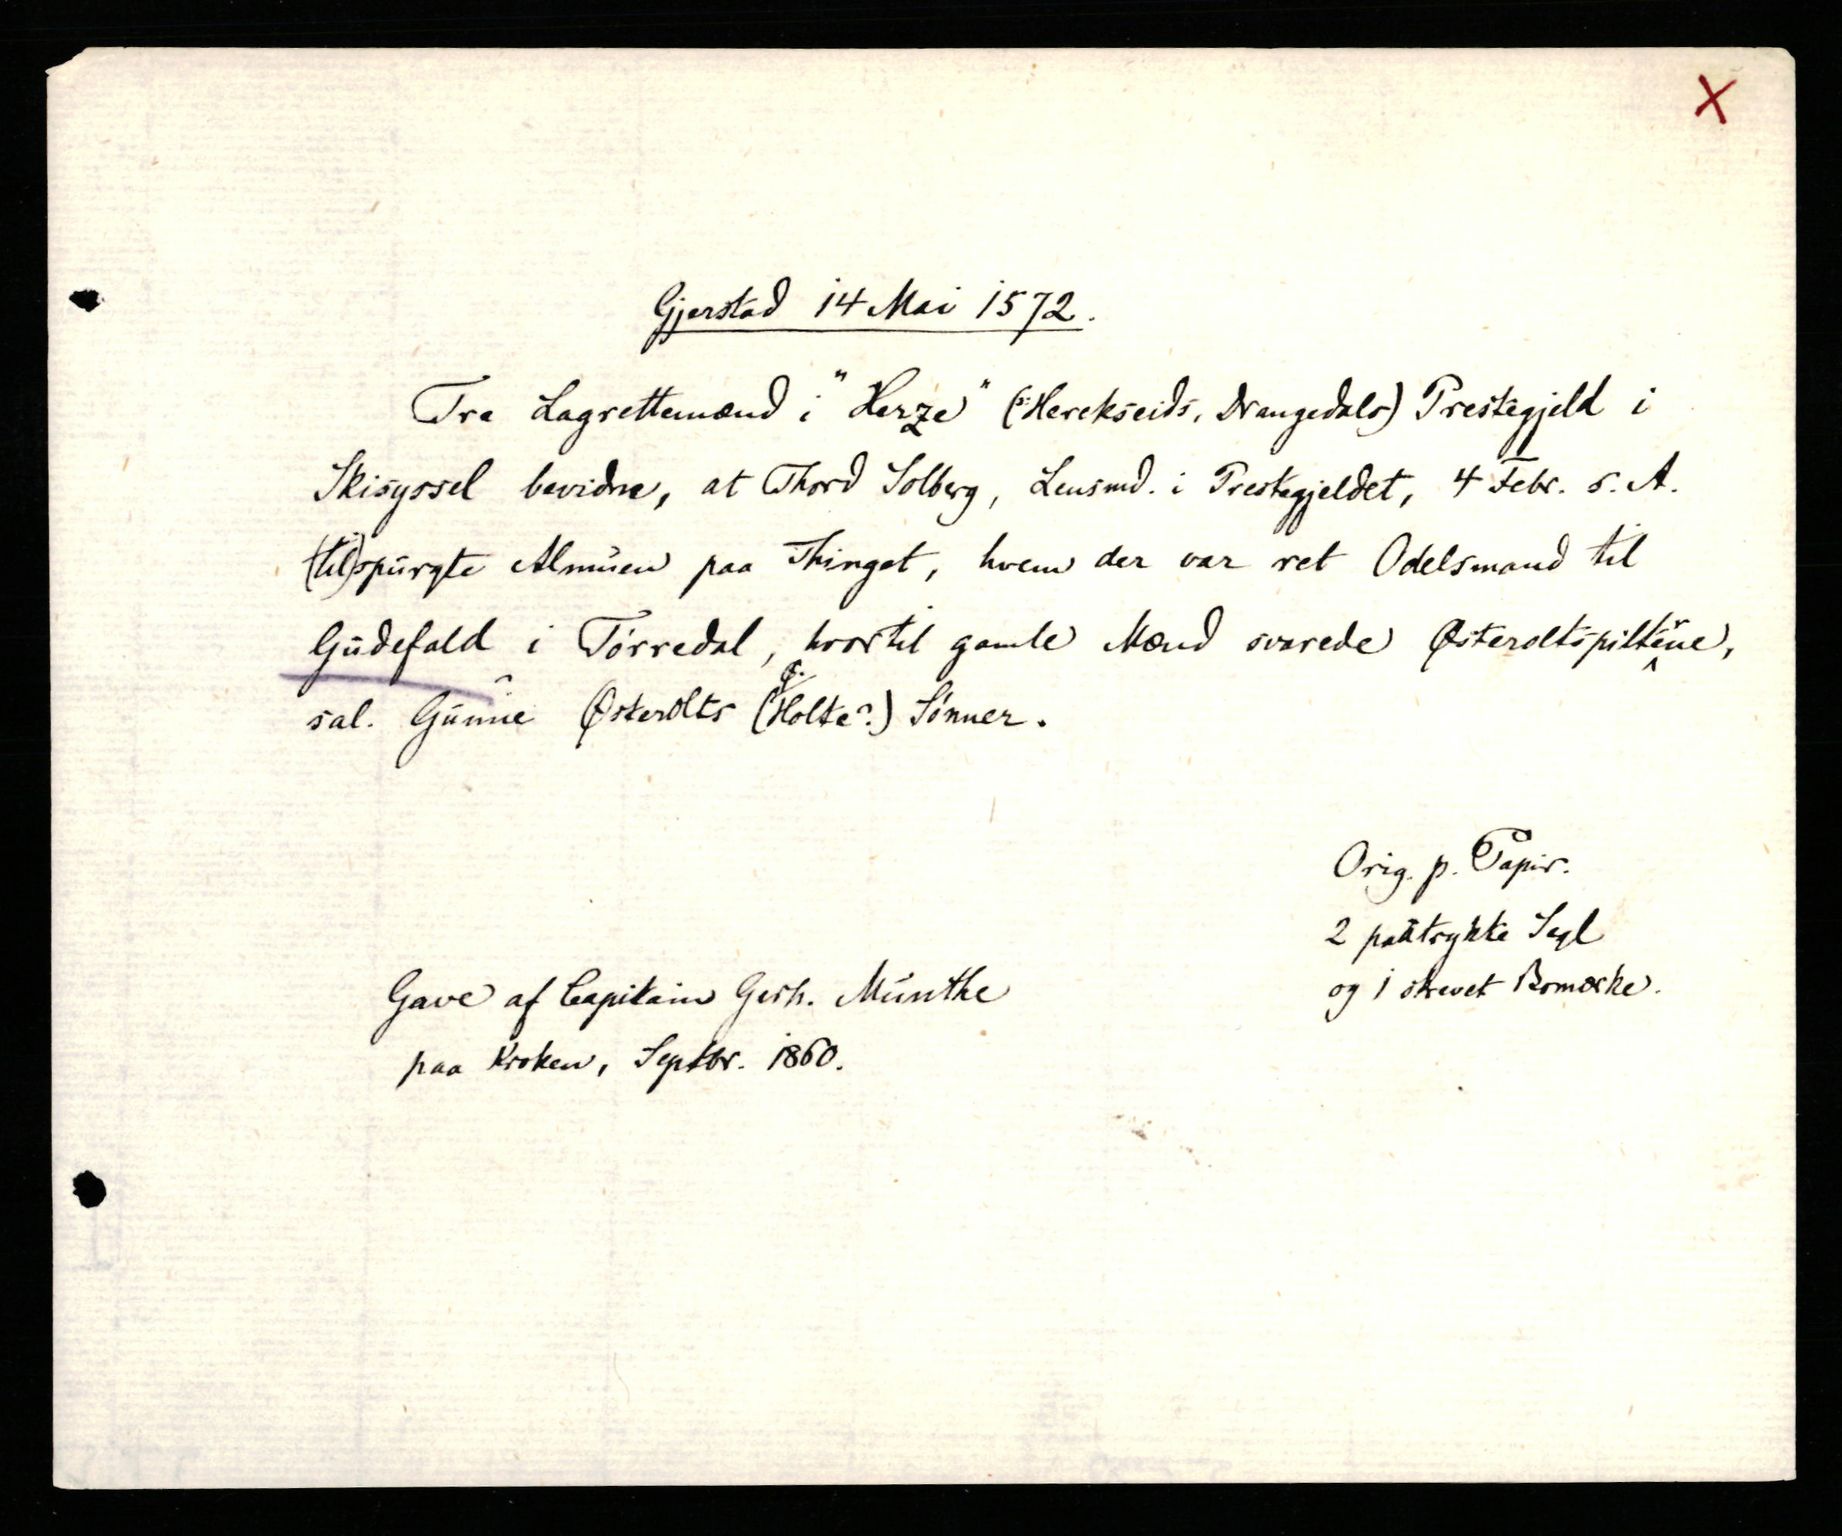 X
Gjerstad 14 Mai 1572.
Tre Lagrettemænd i "Herze" (ɔ: Herekseids, Drangedals) Prestegjeld i
Skisyssel bevidne, at Thord Solberg, Lensmd. i Prestegjeldet, 4 Febr. s. A.
(til)spurgte Almuen paa Thinget, hvem der var ret Odelsmand til
Gudefald i Tørredal, hvortil gamle Mænd svarede Østeroltspiltene,
sal. Gunne Østerolts (Ø. Holte?) Sønner.
Orig. p. Papir.
2 paatrykte Segl
og 1 skrevet Bomærke.
Gave af Capitain Gerh. Munthe
paa Kroken, Septbr. 1860.